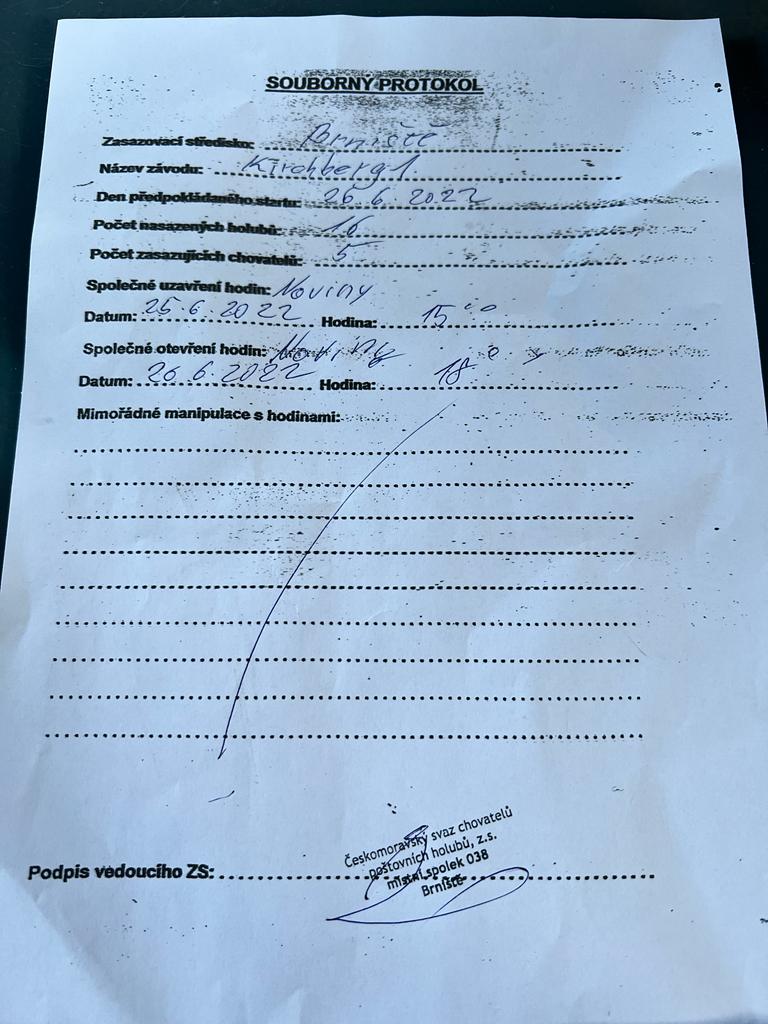 SOUBORNÝ PROTOKOL
Zasazovací středisko: Brniště
Název závodu: Kirchberg 1.
Den předpokládaného startu: 26.6.2022
Počet nasazených holubů: 16
Počet zasazujících chovatelů: 5
Společné uzavření hodin: Noviny
Datum: 25.6.2022 Hodina: 15 00
Společné otevření hodin: Noviny
Datum: 26.6.2022 Hodina: 18 0
Mimořádné manipulace s hodinami:
Českomoravský svaz chovatelů
poštovních holubů, z.s.
místní spolek 038
Brniště
Podpis vedoucího ZS: